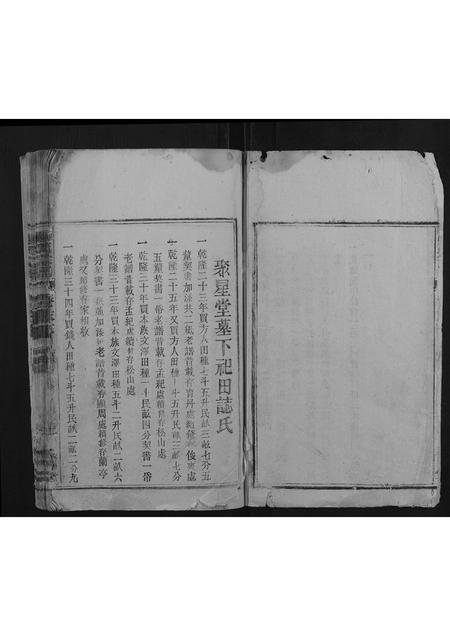 聚星堂墓下祀田誌氏
一乾隆二十三年買方人田種七斗五升民畝三畝七分五
釐契書加添共二紙老譜昔載存青丹處續修存後裏處
一乾隆二十五年又買方人田種一斗五升民畝三畝七分
五釐契書一帋老譜昔載存孟祀處續修存松山處
一乾隆三十年買本族文澤田種一斗民畝四分契書一帋
老譜昔載存孟紀處續修存松山處
一乾隆三十三年買本族文澤田種五斗二升民畝二畝六
分契書一紙並加添老譜昔載存周處續修存蘭亭
處又續修存家相敬
一乾隆三十四年買錢人田種七斗五升民畝二畝二分九